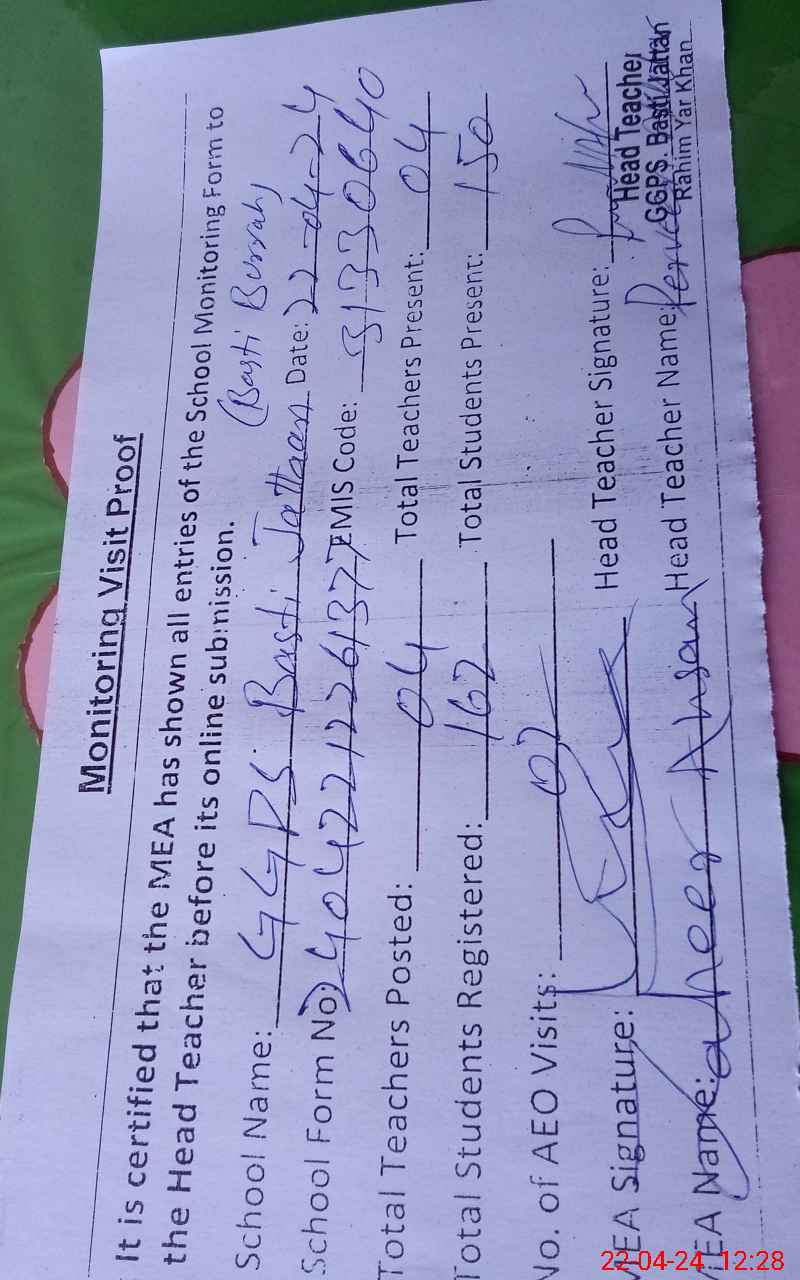 Monitoring Visit Proof
It is certified that the MEA has shown all entries of the School Monitoring Form to
the Head Teacher before its online submission.
(Basti Burrah)
School Name: GGPS Basti Jattaan Date: 22-04-24
School Form No: 24042212261377 EMIS Code: 31330640
Total Teachers Posted: 04 Total Teachers Present: 04
Total Students Registered: 162 Total Students Present: 150
No. of AEO Visits: 02
MEA Signature: Head Teacher Signature:
Head Teacher
GGPS. Basti Jattan
Rahim Yar Khan
MEA Name: Ahsan Head Teacher Name: Perveen
22-04-24 12:28